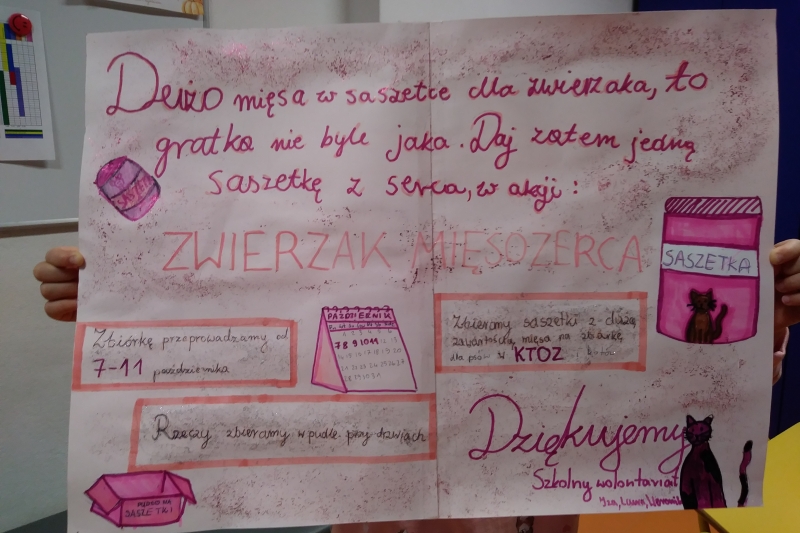 Dużo mięsa w saszetce dla zwierzaka, to
gratka nie byle jaka. Daj zatem jedną
saszetkę z serca, w akcji:
ZWIERZAK MIĘSOŻERCA
SASZETKA
Zbiórkę przeprowadzamy od
7-11 października
PAŹDZIERNIK
7 8 9 10 11
Zbieramy saszetki z dużą
zawartością mięsa na zbiórkę
dla psów w KTOZ i kotów
Rzeczy zbieramy w pudle przy drzwiach
SASZETKI
Dziękujemy
Szkolny wolontariat
Iza, Laura, Weronika